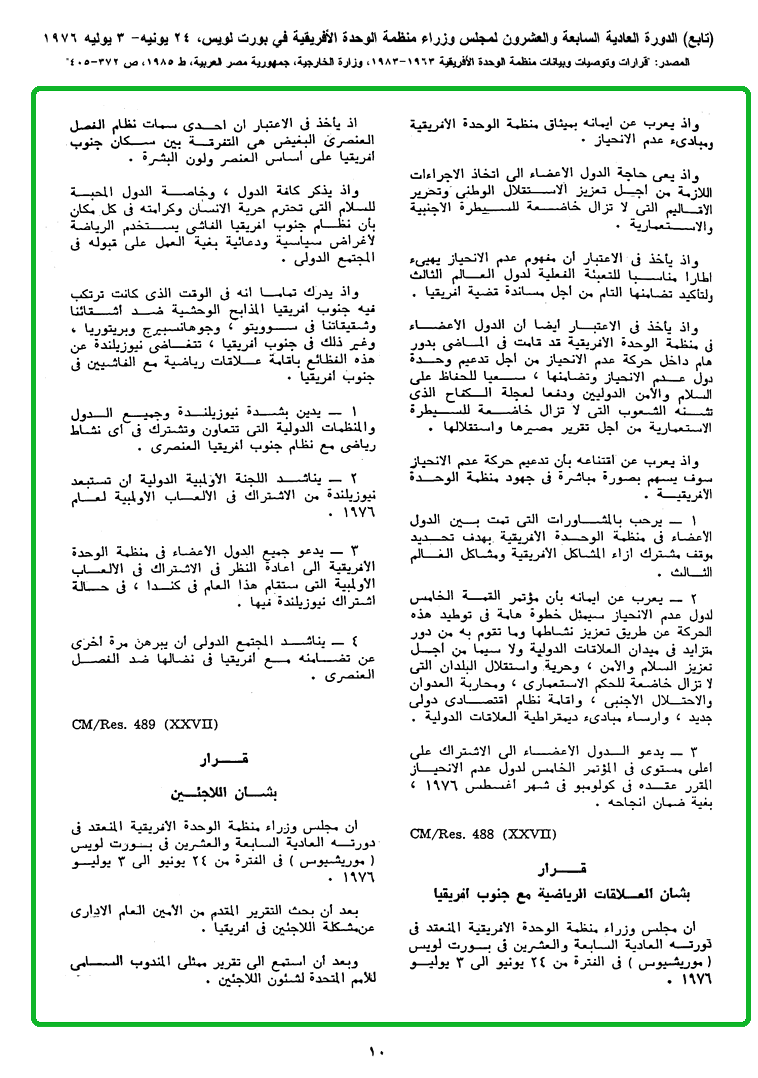 (تابع) الدورة العادية السابعة والعشرون لمجلس وزراء منظمة الوحدة الأفريقية في بورت لويس، ٢٤ يونيه- ٣ يوليه ١٩٧٦
المصدر: "قرارات وتوصيات وبيانات منظمة الوحدة الأفريقية ١٩٦٣-١٩٨٣"، وزارة الخارجية، جمهورية مصر العربية، ط ١٩٨٥، ص ٣٧٢-٤٠٥"
واذ يعرب عن ايمانه بميثاق منظمة الوحدة الأفريقية
ومبادىء عدم الانحياز .
واذ يعى حاجة الدول الأعضاء الى اتخاذ الاجراءات
اللازمة من اجل تعزيز الاستقلال الوطنى وتحرير
الأقاليم التى لا تزال خاضعة للسيطرة الأجنبية
والاستعمارية .
واذ يأخذ فى الاعتبار أن مفهوم عدم الانحياز يهيىء
اطارا مناسبا للتعبئة الفعلية لدول العالم الثالث
ولتأكيد تضامنها التام من أجل مساندة قضية أفريقيا .
واذ يأخذ فى الاعتبار أيضا أن الدول الأعضاء
فى منظمة الوحدة الأفريقية قد قامت فى الماضى بدور
هام داخل حركة عدم الانحياز من أجل تدعيم وحدة
دول عدم الانحياز وتضامنها ، سعيا للحفاظ على
السلام والأمن الدوليين ودفعا لعجلة الكفاح الذى
تشنه الشعوب التى لا تزال خاضعة للسيطرة
الاستعمارية من أجل تقرير مصيرها واستقلالها .
واذ يعرب عن اقتناعه بأن تدعيم حركة عدم الانحياز
سوف يسهم بصورة مباشرة فى جهود منظمة الوحدة
الأفريقية .
١ — يرحب بالمشاورات التى تمت بين الدول
الأعضاء فى منظمة الوحدة الأفريقية بهدف تحديد
موقف مشترك ازاء المشاكل الأفريقية ومشاكل العالم
الثالث .
٢ — يعرب عن ايمانه بأن مؤتمر القمة الخامس
لدول عدم الانحياز سيمثل خطوة هامة فى توطيد هذه
الحركة عن طريق تعزيز نشاطها وما تقوم به من دور
متزايد فى ميدان العلاقات الدولية ولا سيما من أجل
تعزيز السلام والأمن ، وحرية واستقلال البلدان التى
لا تزال خاضعة للحكم الاستعمارى ، ومحاربة العدوان
والاحتلال الأجنبى ، واقامة نظام اقتصادى دولى
جديد ، وارساء مبادىء ديمقراطية العلاقات الدولية .
٣ — يدعو الدول الأعضاء الى الاشتراك على
أعلى مستوى فى المؤتمر الخامس لدول عدم الانحياز
المقرر عقده فى كولومبو فى شهر أغسطس ١٩٧٦ ،
بغية ضمان انجاحه .
CM/Res. 488 (XXVII)
قرار
بشأن العلاقات الرياضية مع جنوب أفريقيا
ان مجلس وزراء منظمة الوحدة الأفريقية المنعقد فى
دورته العادية السابعة والعشرين فى بورت لويس
( موريشيوس ) فى الفترة من ٢٤ يونيو الى ٣ يوليو
١٩٧٦ .
اذ يأخذ فى الاعتبار ان احدى سمات نظام الفصل
العنصرى البغيض هى التفرقة بين سكان جنوب
افريقيا على أساس العنصر ولون البشرة .
واذ يذكر كافة الدول ، وخاصة الدول المحبة
للسلام التى تحترم حرية الانسان وكرامته فى كل مكان
بأن نظام جنوب أفريقيا الفاشى يستخدم الرياضة
لأغراض سياسية ودعائية بغية العمل على قبوله فى
المجتمع الدولى .
واذ يدرك تماما انه فى الوقت الذى كانت ترتكب
فيه جنوب أفريقيا المذابح الوحشية ضد أشقائنا
وشقيقاتنا فى سوويتو ، وجوهانسبرج وبريتوريا ،
وغير ذلك فى جنوب أفريقيا ، تتغاضى نيوزيلندة عن
هذه الفظائع باقامة علاقات رياضية مع الفاشيين فى
جنوب أفريقيا .
١ — يدين بشدة نيوزيلندة وجميع الدول
والمنظمات الدولية التى تتعاون وتشترك فى أى نشاط
رياضى مع نظام جنوب أفريقيا العنصرى .
٢ — يناشد اللجنة الأولمبية الدولية ان تستبعد
نيوزيلندة من الاشتراك فى الألعاب الأولمبية لعام
١٩٧٦ .
٣ — يدعو جميع الدول الأعضاء فى منظمة الوحدة
الأفريقية الى اعادة النظر فى الاشتراك فى الألعاب
الأولمبية التى ستقام هذا العام فى كندا ، فى حالة
اشتراك نيوزيلندة فيها .
٤ — يناشد المجتمع الدولى ان يبرهن مرة أخرى
عن تضامنه مع أفريقيا فى نضالها ضد الفصل
العنصرى .
CM/Res. 489 (XXVII)
قرار
بشأن اللاجئين
ان مجلس وزراء منظمة الوحدة الأفريقية المنعقد فى
دورته العادية السابعة والعشرين فى بورت لويس
( موريشيوس ) فى الفترة من ٢٤ يونيو الى ٣ يوليو
١٩٧٦ .
بعد أن بحث التقرير المقدم من الأمين العام الادارى
عن مشكلة اللاجئين فى أفريقيا .
وبعد ان استمع الى تقرير ممثلى المندوب السامى
للأمم المتحدة لشئون اللاجئين .
١٠